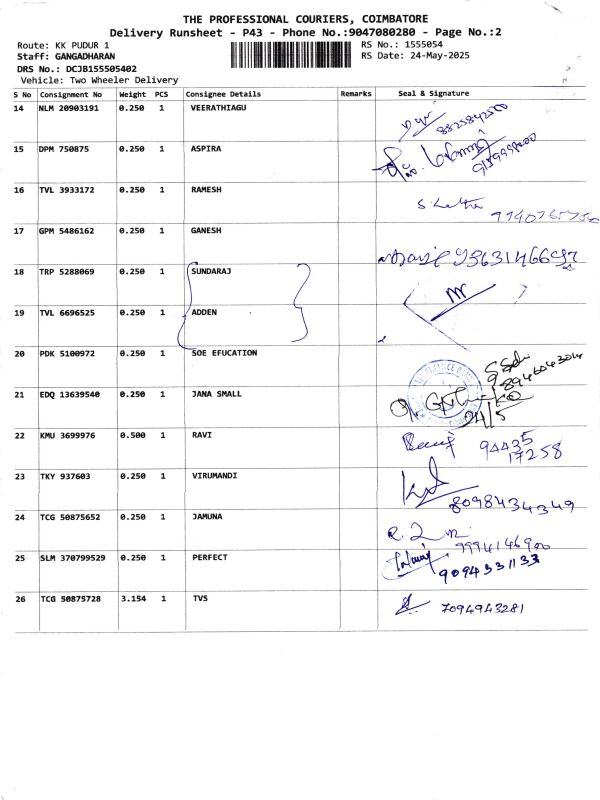 THE PROFESSIONAL COURIERS, COIMBATORE
Delivery Runsheet - P43 - Phone No.:9047080280 - Page No.:2
Route: KK PUDUR 1 RS No.: 1555054
Staff: GANGADHARAN RS Date: 24-May-2025
DRS No.: DCJB155505402
Vehicle: Two Wheeler Delivery
S No Consignment No Weight PCS Consignee Details Remarks Seal & Signature
14 NLM 20903191 0.250 1 VEERATHIAGU
15 DPM 750875 0.250 1 ASPIRA
16 TVL 3933172 0.250 1 RAMESH
17 GPM 5486162 0.250 1 GANESH
18 TRP 5288069 0.250 1 SUNDARAJ
19 TVL 6696525 0.250 1 ADDEN
20 PDK 5100972 0.250 1 SOE EFUCATION
894604304
21 EDQ 13639540 0.250 1 JANA SMALL
24/5
22 KMU 3699976 0.500 1 RAVI 94435
17258
23 TKY 937603 0.250 1 VIRUMANDI
8098434349
24 TCG 50875652 0.250 1 JAMUNA
9994146900
25 SLM 370799529 0.250 1 PERFECT
9094331133
26 TCG 50875728 3.154 1 TVS 7094943281